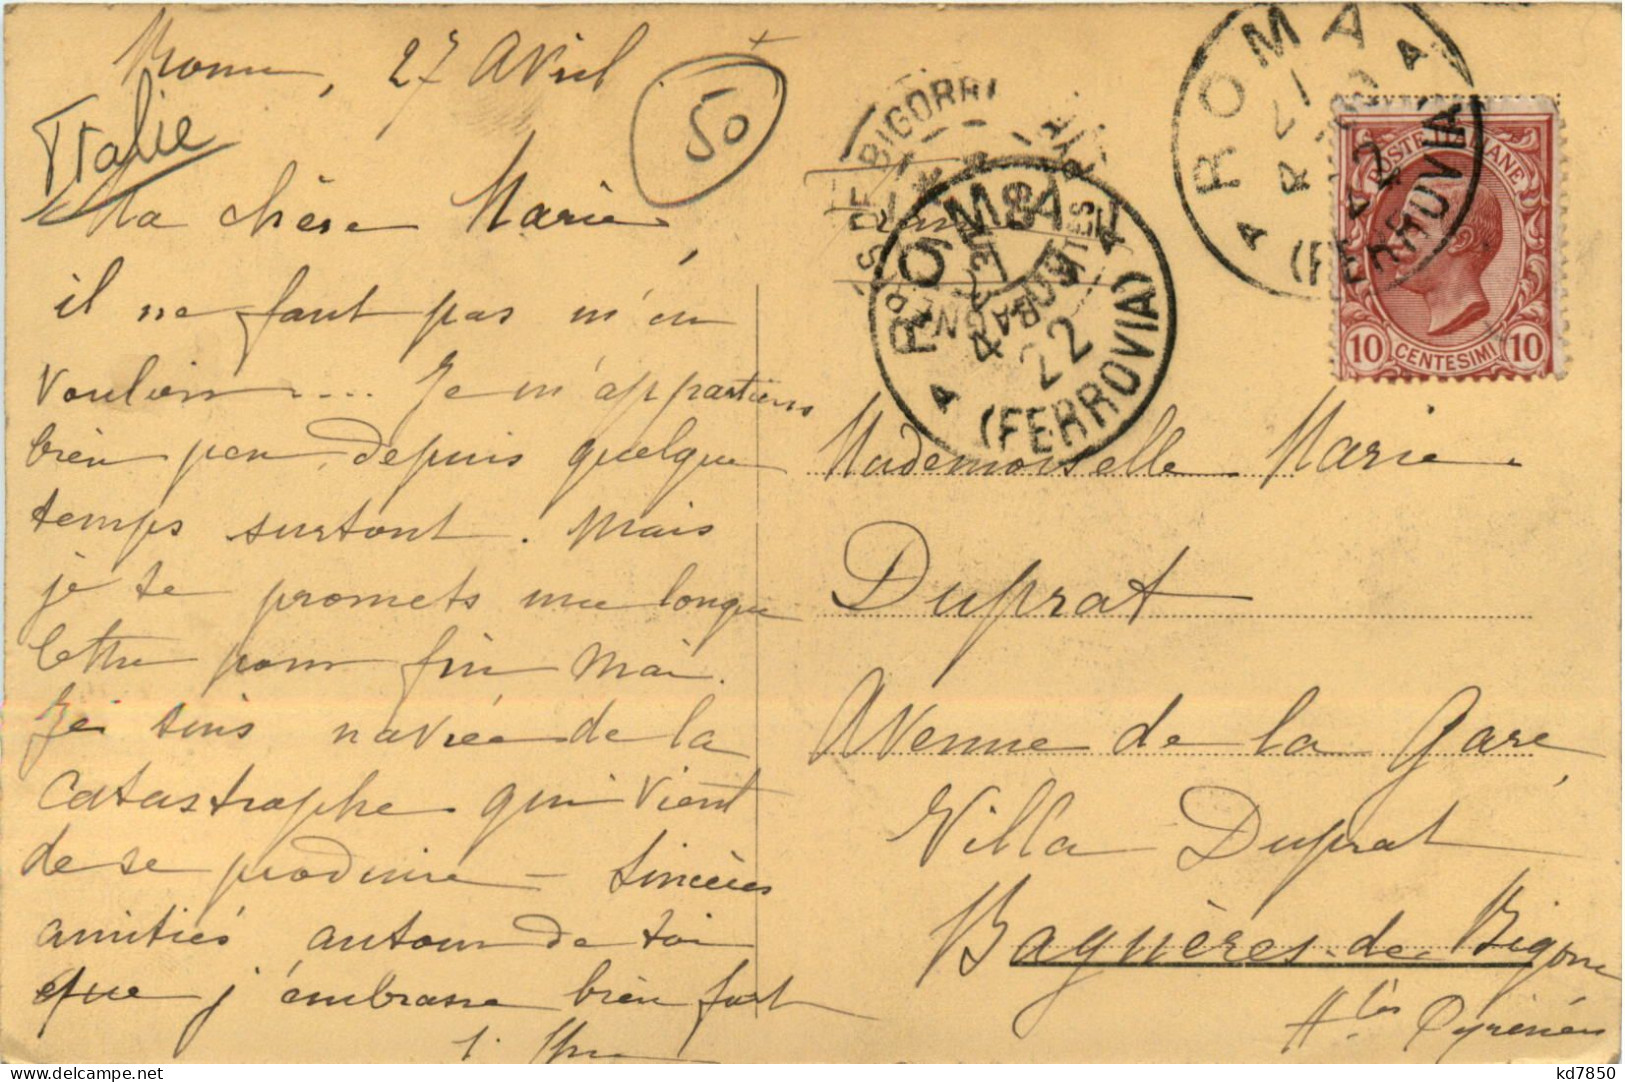 Rome, 27 Avril
Italie
50
Ma chère Marie,
il ne faut pas m'en
vouloir.... Je m'appartiens
bien peu, depuis quelque
temps surtout. Mais
je te promets une longue
lettre pour fin Mai.
Je suis navrée de la
catastrophe qui vient
de se produire - Sincères
amitiés autour de toi
que j'embrasse bien fort
ROMA
22
(FERROVIA)
ROMA
(FERROVIA)
POSTE ITALIANE
10 CENTESIMI 10
DE BIGORRE
Mademoiselle Marie
Duprat
Avenue de la Gare,
Villa Duprat
Bagnères-de-Bigorre
Htes Pyrénées
kd7850